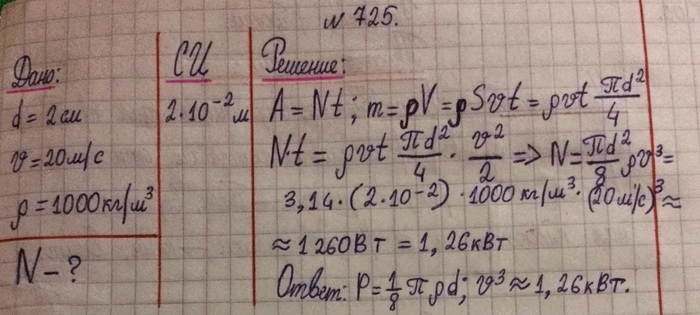 № 725.
Дано:
d = 2 см
υ = 20 м/с
ρ = 1000 кг/м³
N - ?
СИ
2·10⁻² м
Решение:
A = Nt; m = ρV = ρSυt = ρυt πd²/4
N·t = ρυt πd²/4 · υ²/2 => N = πd²/8 ρυ³ =
3,14·(2·10⁻²)·1000 кг/м³·(20 м/с)³ ≈
≈ 1260 Вт = 1,26 кВт
Ответ: P = 1/8 π ρd; υ³ ≈ 1,26 кВт.